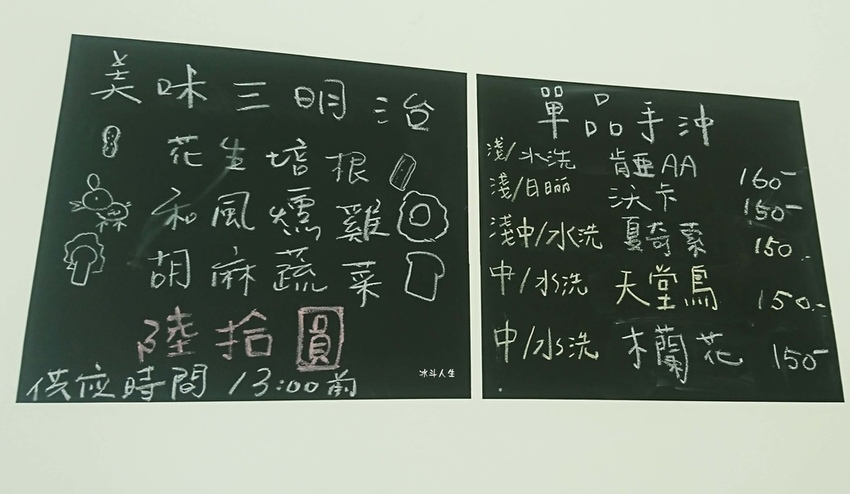 美味三明治
花生培根
和風燻雞
胡麻蔬菜
陸拾圓
供应時間 13:00前
冰斗人生
單品手冲
淺/水洗 肯亞AA 160-
淺/日晒 沃卡 150-
淺中/水洗 夏奇索 150.
中/水洗 天堂鳥 150.-
中/水洗 木蘭花 150-